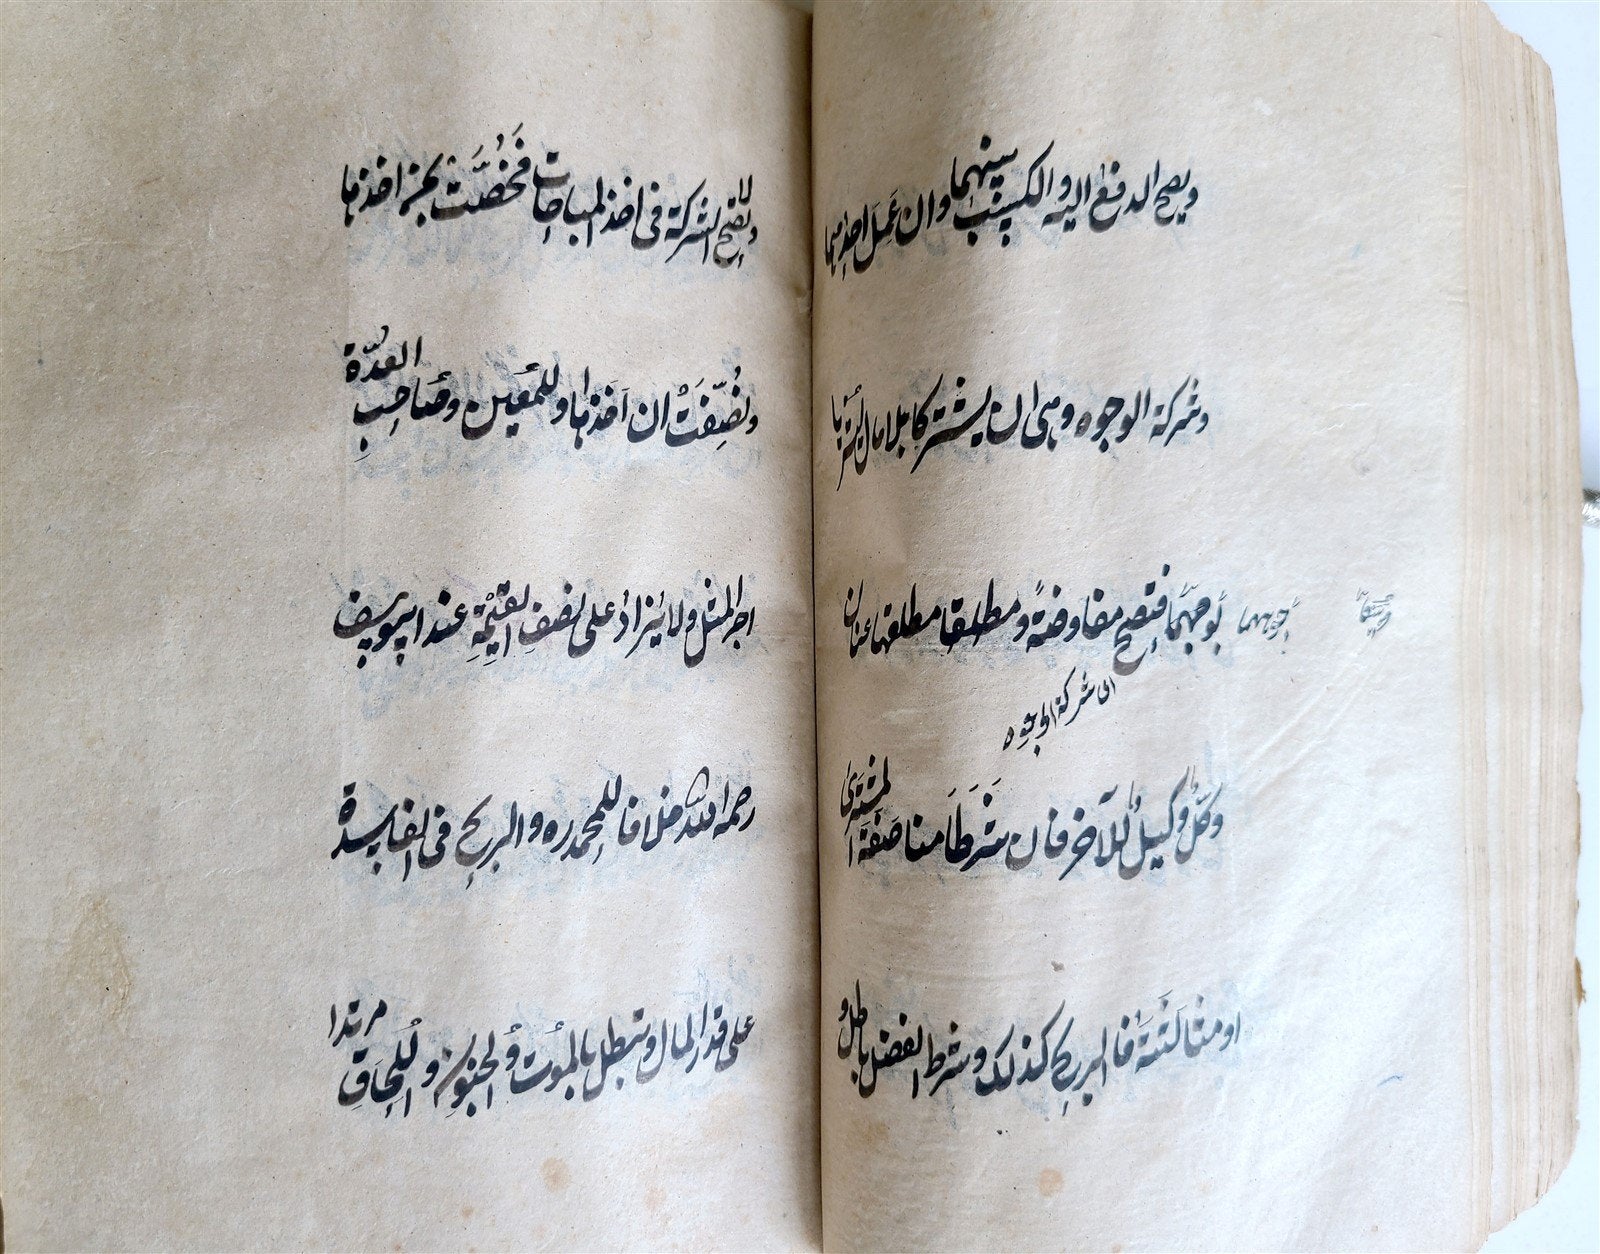 ويصح الدفع اليه والكسب بينهما وان عمل احدهما
وشركة الوجوه وهى ان يشتركا بلا مال ليشتريا
بوجهما فتصح مفاوضةً ومطلقا مطلقها عنان
اى شركة الوجوه
وكلٌ وكيلٌ للآخر فان شَرَطَا مناصفة المشترى
او مثالثتَه فالربح كذلك وشرط الفضل باطل و
لا تصح الشركة فى اخذ المباحات فَخُصَّت بمن اخذها
ونُصِّفَتْ ان اخذاها وللمُعين وصاحب العدّة
اجر المثل ولا يُزادُ على نصف القيمةِ عند ابى يوسف
رحمه الله خلافا لمحمد ره والربح فى الفاسدة
على قدر المال وتبطل بالموت والجنون واللحاقِ مرتدا